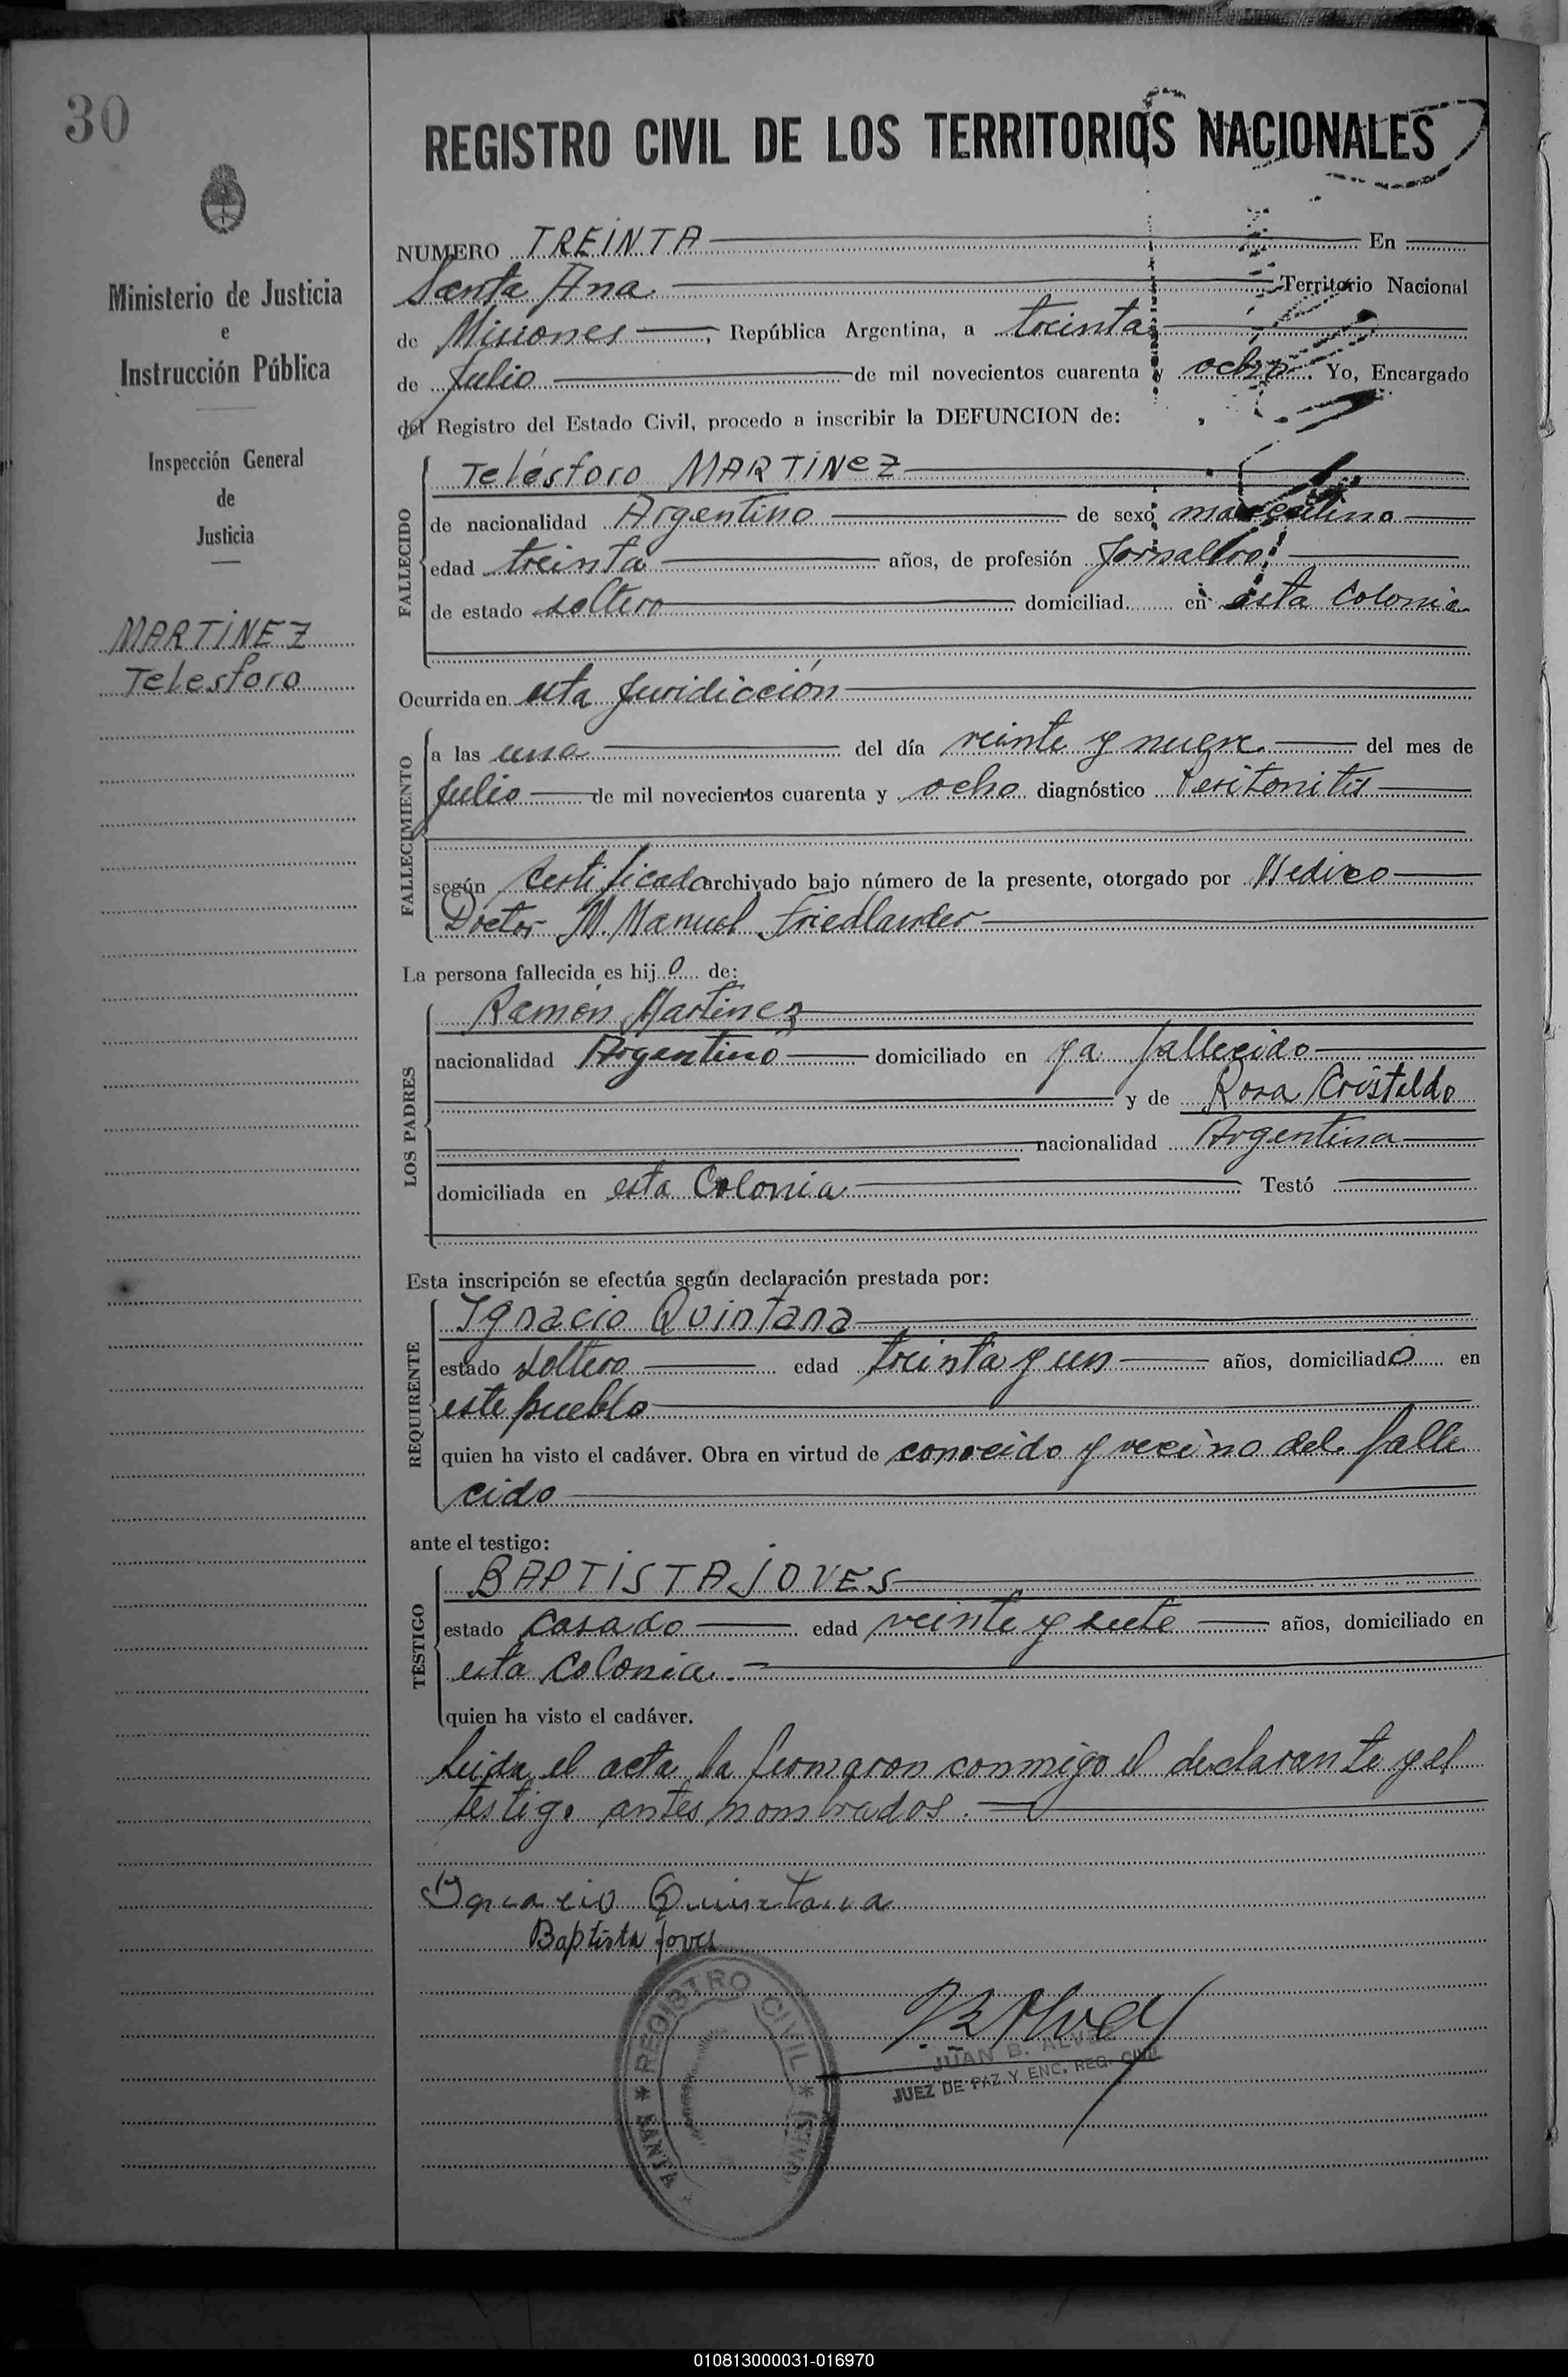 30
Ministerio de Justicia
e
Instrucción Pública
Inspección General
de
Justicia
MARTINEZ
Telesforo
REGISTRO CIVIL DE LOS TERRITORIOS NACIONALES
NUMERO TREINTA En
Santa Ana Territorio Nacional
de Misiones, República Argentina, a treinta
de Julio de mil novecientos cuarenta y ocho. Yo, Encargado
del Registro del Estado Civil, procedo a inscribir la DEFUNCION de:
FALLECIDO
Telésforo MARTINez
de nacionalidad Argentino de sexo masculino
edad treinta años, de profesión Jornalero
de estado soltero domiciliad en esta Colonia
Ocurrida en esta Juridicción
FALLECIMIENTO
a las una del día veinte y nueve del mes de
Julio de mil novecientos cuarenta y ocho diagnóstico Peritonitis
según Certificado archivado bajo número de la presente, otorgado por Medico
Doctor M. Manuel Friedlander
La persona fallecida es hijo de:
LOS PADRES
Ramón Martinez
nacionalidad Argentino domiciliado en ya fallecido
y de Rosa Cristaldo
nacionalidad Argentina
domiciliada en esta Colonia Testó
Esta inscripción se efectúa según declaración prestada por:
REQUIRENTE
Ignacio Quintana
estado soltero edad treinta y un años, domiciliado en
este pueblo
quien ha visto el cadáver. Obra en virtud de conocido y vecino del falle
cido
ante el testigo:
TESTIGO
BAPTISTA JOVES
estado casado edad veinte y siete años, domiciliado en
esta Colonia.
quien ha visto el cadáver.
Leida el acta la firmaron conmigo el declarante y el
testigo antes nombrados.
Ignacio Quintana
Baptista Joves
REGISTRO CIVIL
SANTA
JUAN B. ALVEZ
JUEZ DE PAZ Y ENC. REG. CIVIL
010813000031-016970